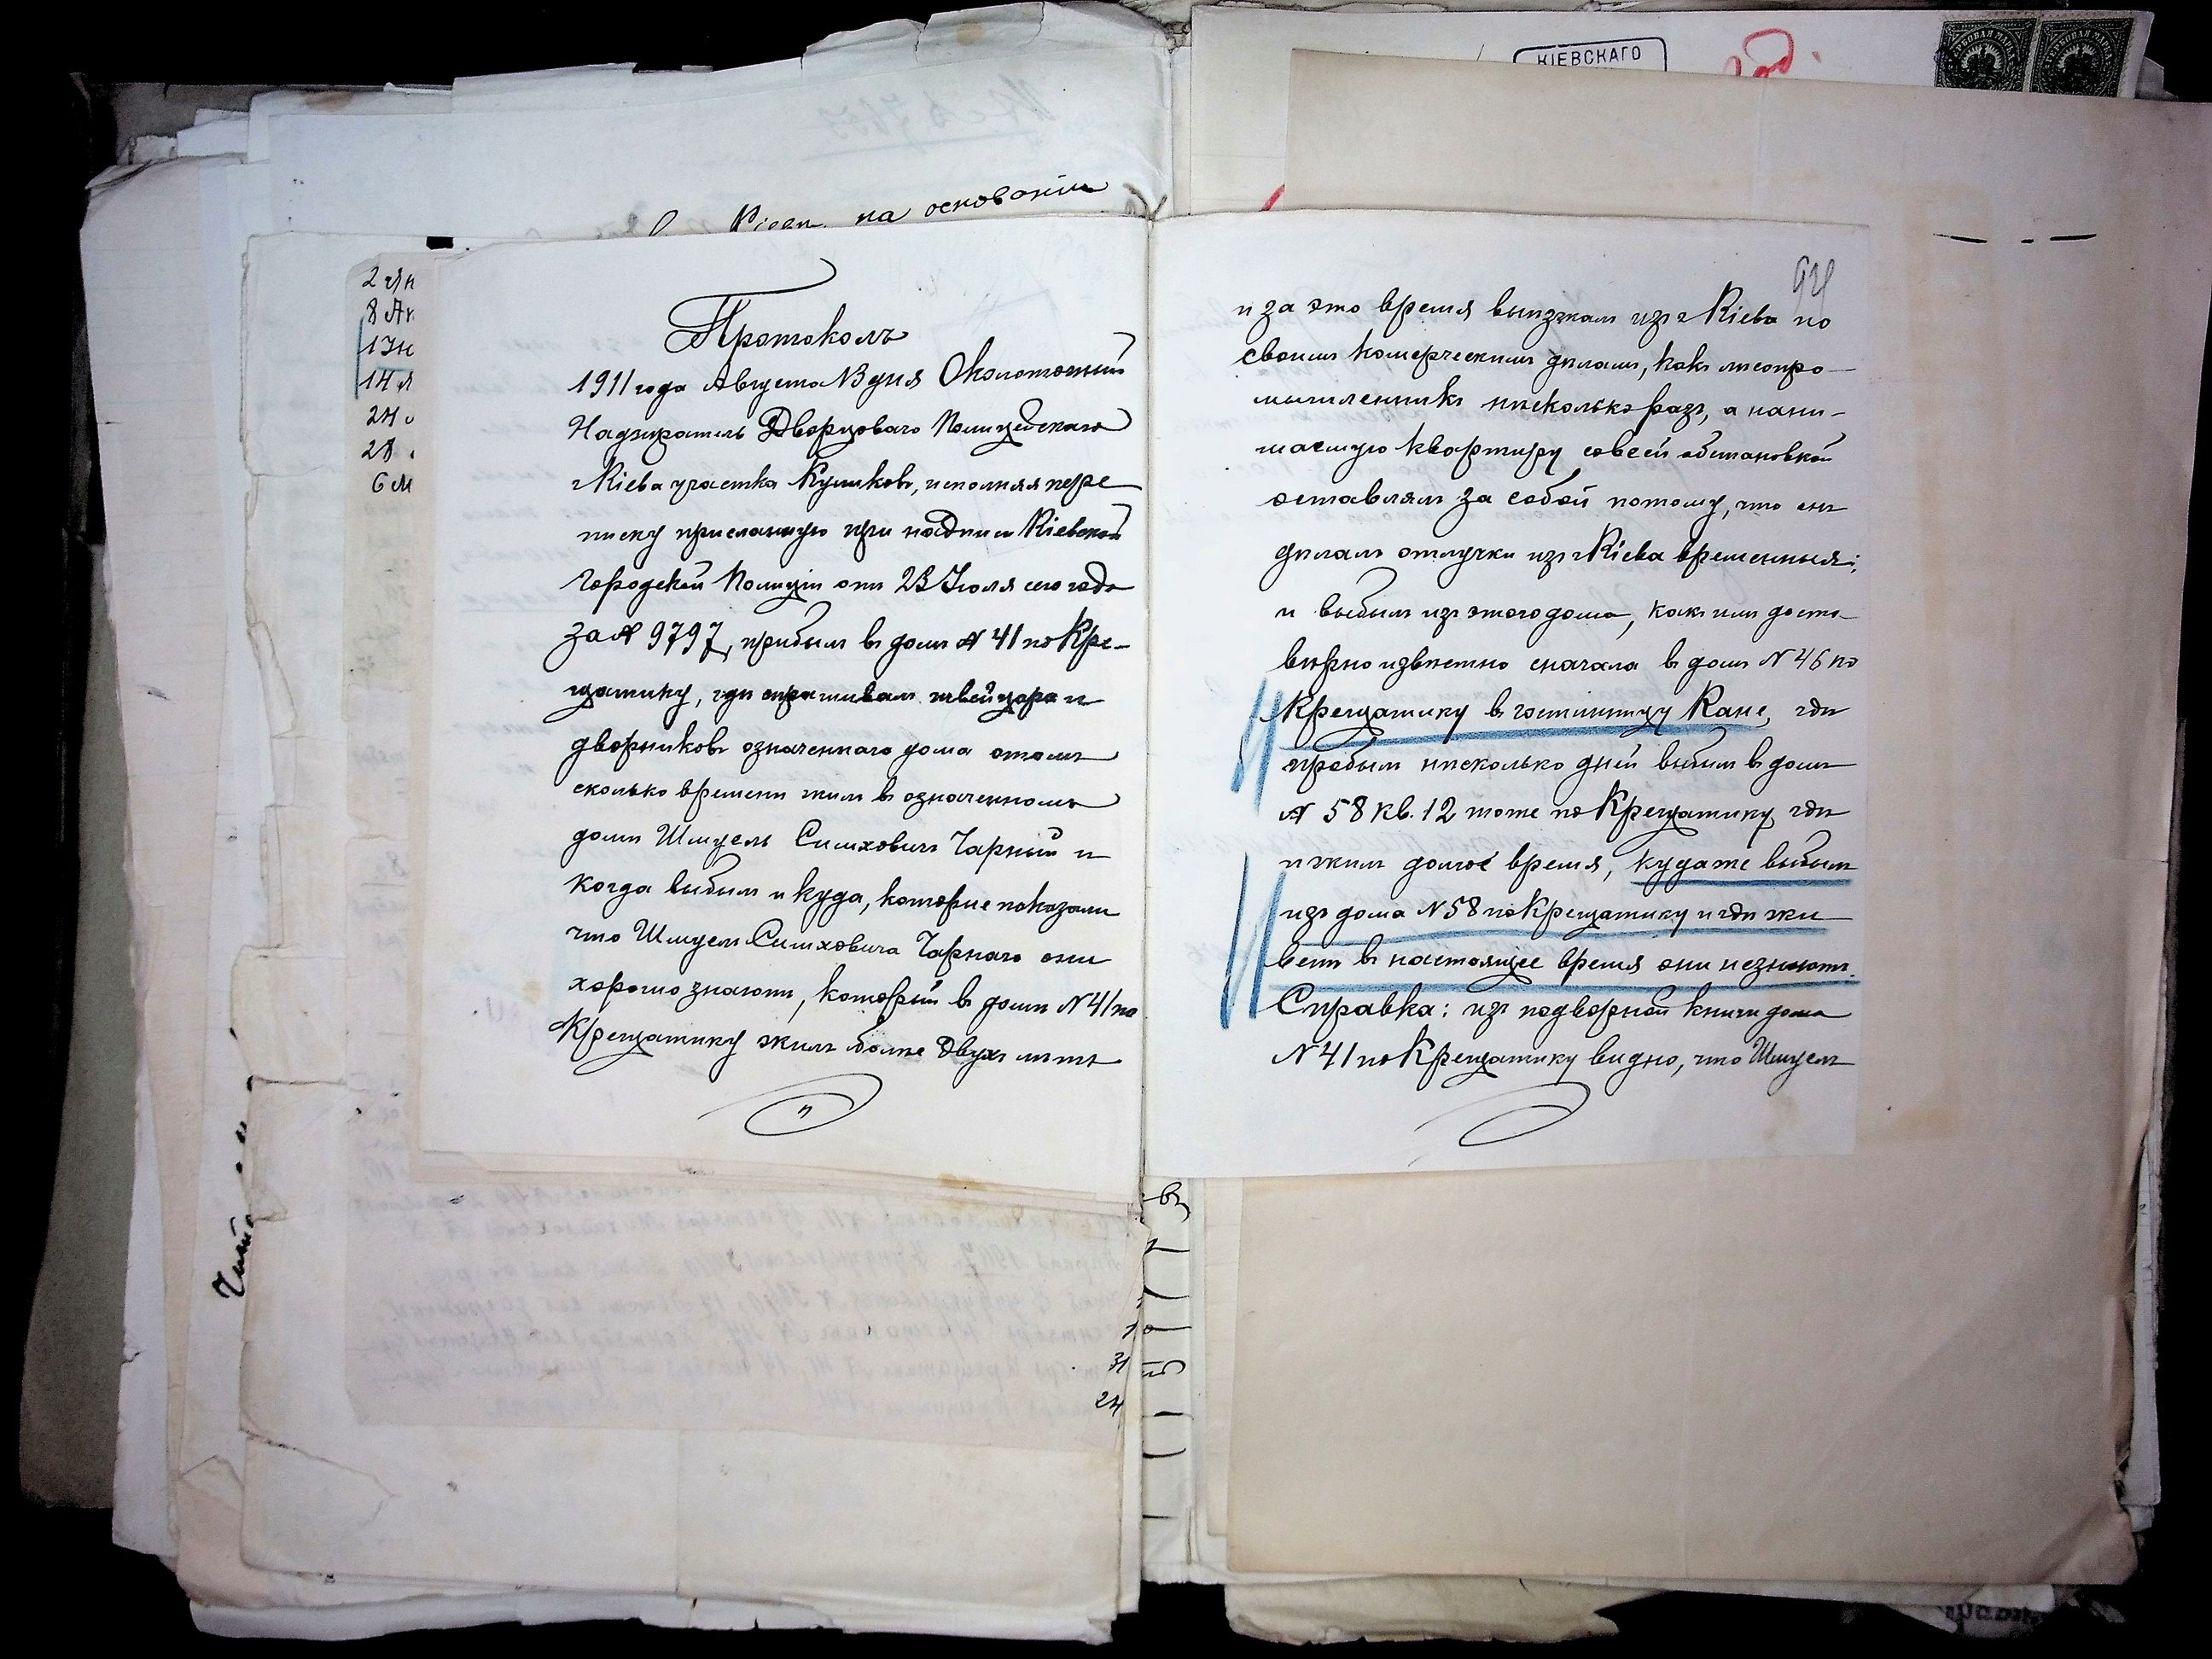 КІЕВСКАГО
на основаніи
2 Ян
8 Ап
1 Ію
14
24
28
6 М
Протоколъ
1911 года Августа 13 дня Околоточный
Надзиратель Дворцоваго Полицейскаго
г Кіева участка Куликовъ, исполняя пере
писку присланную при надписи Кіевской
Городской Полиціи отъ 23 Іюля сего года
за № 9797, прибылъ въ домъ № 41 по Кре-
щатику, гдѣ спрашивалъ швейцара и
дворниковъ означеннаго дома о томъ
сколько времени жилъ въ означенномъ
домѣ Шмуель Симховичъ Чарный и
когда выбылъ и куда, которые показали
что Шмуеля Симховича Чарнаго они
хорошо знаютъ, который въ домѣ № 41 по
Крещатику жилъ болѣе двухъ лѣтъ
94
и за это время выѣзжалъ изъ г Кіева по
своимъ комерческимъ дѣламъ, какъ лѣсопро-
мышленникъ нѣсколько разъ, а нани-
маемую квартиру со всей обстановкой
оставлялъ за собой потому, что онъ
дѣлалъ отлучки изъ г Кіева временныя;
и выбылъ изъ этого дома, какъ имъ досто-
вѣрно извѣстно сначала въ домъ № 46 по
Крещатику въ гостинницу Кане, гдѣ
пробылъ нѣсколько дней выбылъ въ домъ
№ 58 кв. 12 тоже по Крещатику, гдѣ
и жилъ долгое время, куда же выбылъ
изъ дома № 58 по Крещатику и гдѣ жи
ветъ въ настоящее время они незнаютъ.
Справка: изъ подворной книги дома
№ 41 по Крещатику видно, что Шмуель
31
24